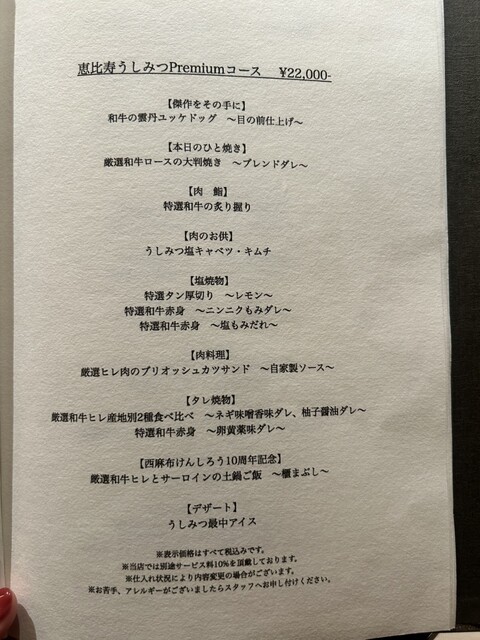 恵比寿うしみつPremiumコース ¥22,000-
【傑作をその手に】
和牛の雲丹ユッケドッグ ～目の前仕上げ～
【本日のひと焼き】
厳選和牛ロースの大判焼き ～ブレンドダレ～
【肉 鮨】
特選和牛の炙り握り
【肉のお供】
うしみつ塩キャベツ・キムチ
【塩焼物】
特選タン厚切り ～レモン～
特選和牛赤身 ～ニンニクもみダレ～
特選和牛赤身 ～塩もみだれ～
【肉料理】
厳選ヒレ肉のブリオッシュカツサンド ～自家製ソース～
【タレ焼物】
厳選和牛ヒレ産地別2種食べ比べ ～ネギ味噌香味ダレ、柚子醤油ダレ～
特選和牛赤身 ～卵黄薬味ダレ～
【西麻布けんしろう10周年記念】
厳選和牛ヒレとサーロインの土鍋ご飯 ～櫃まぶし～
【デザート】
うしみつ最中アイス
※表示価格はすべて税込みです。
※当店では別途サービス料10%を頂戴しております。
※仕入れ状況により内容変更の場合がございます。
※お苦手、アレルギーがございましたらスタッフへお申し付けください。